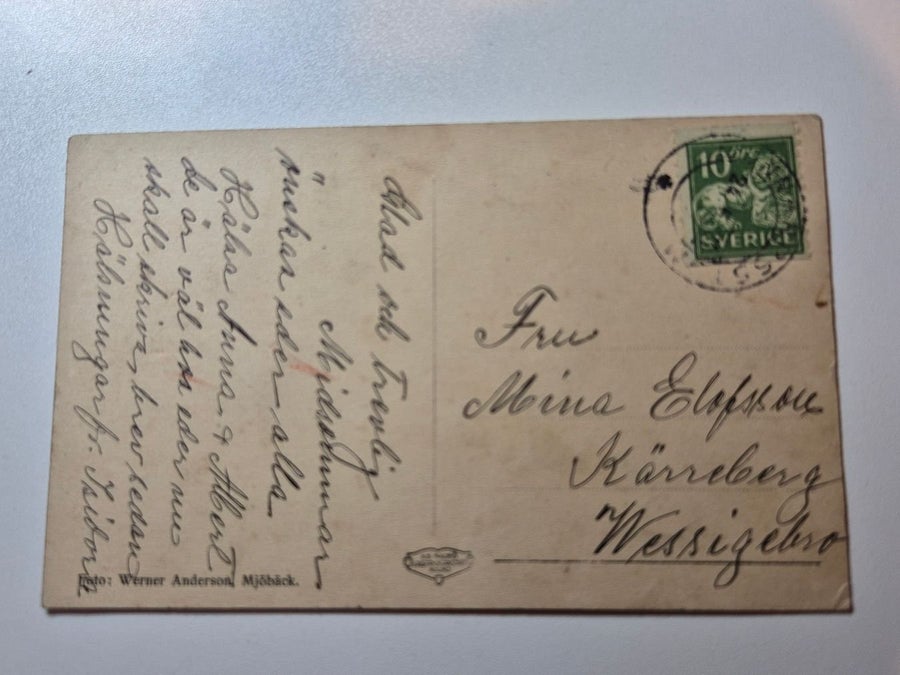 Glad och trevlig
Midsommar
önskas eder alla.
Hälsa Anna & Albert
de är väl hos eder nu
skall skriva brev sedan
Hälsningar fr. Isidor
10 ÖRE
SVERIGE
Fru
Mina Elofsson
Kärreberg
Wessigebro
Foto: Werner Anderson, Mjöbäck.